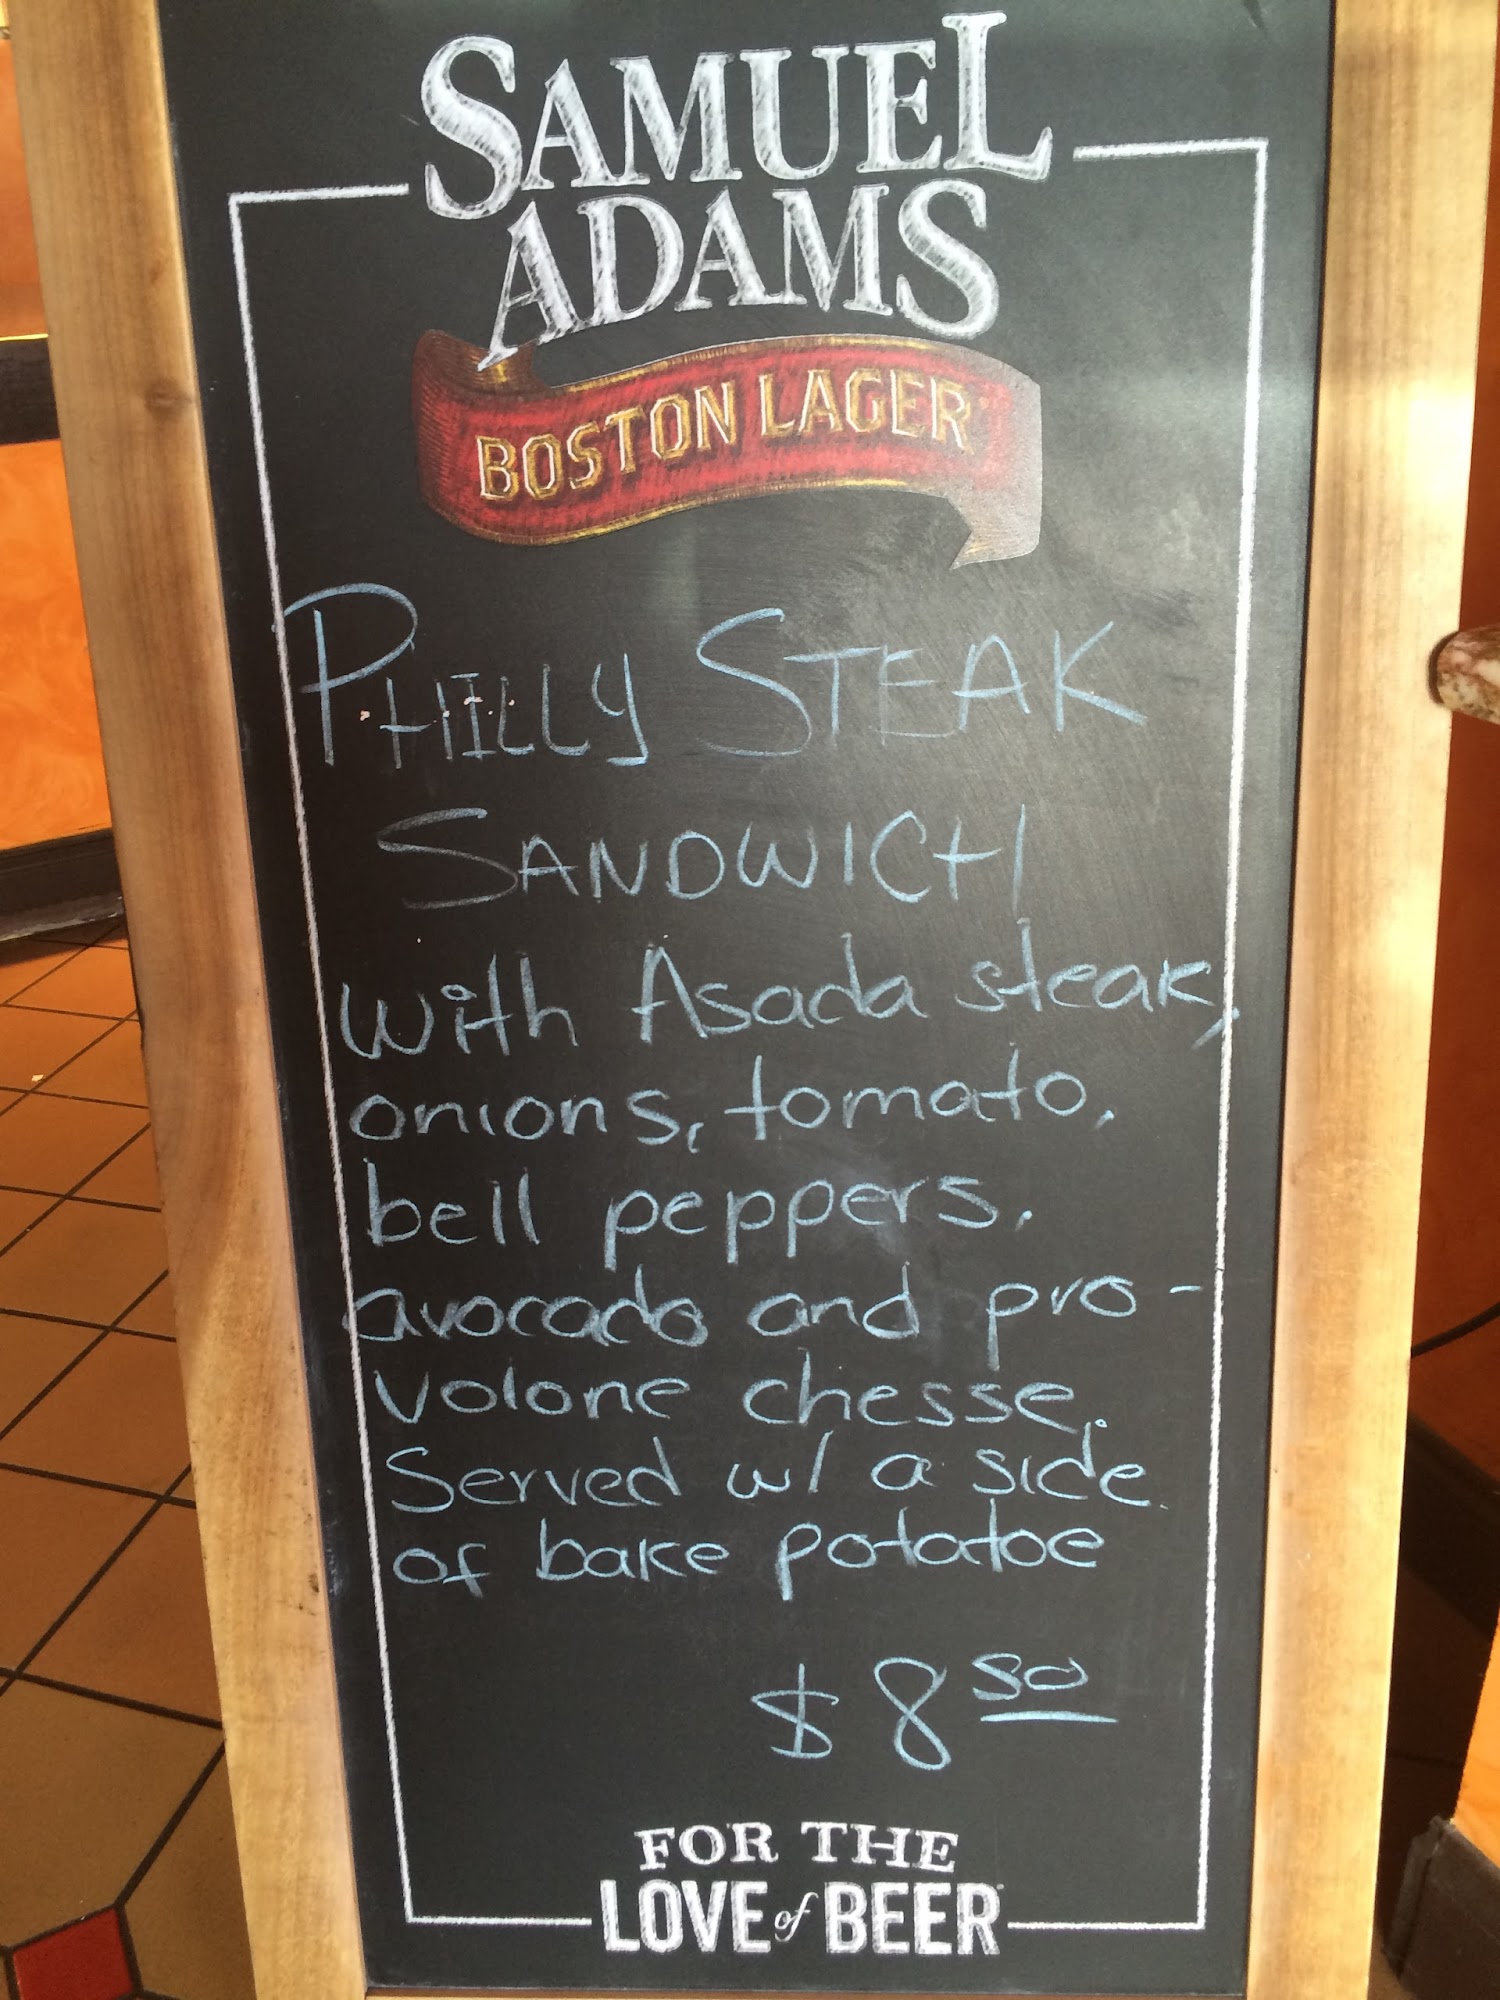 SAMUEL
ADAMS
BOSTON LAGER
PHILLY STEAK
SANDWICH
with Asada steak,
onions, tomato,
bell peppers,
avocado and pro-
volone chesse.
Served w/ a side
of bake potatoe
$8 50
FOR THE
LOVE of BEER